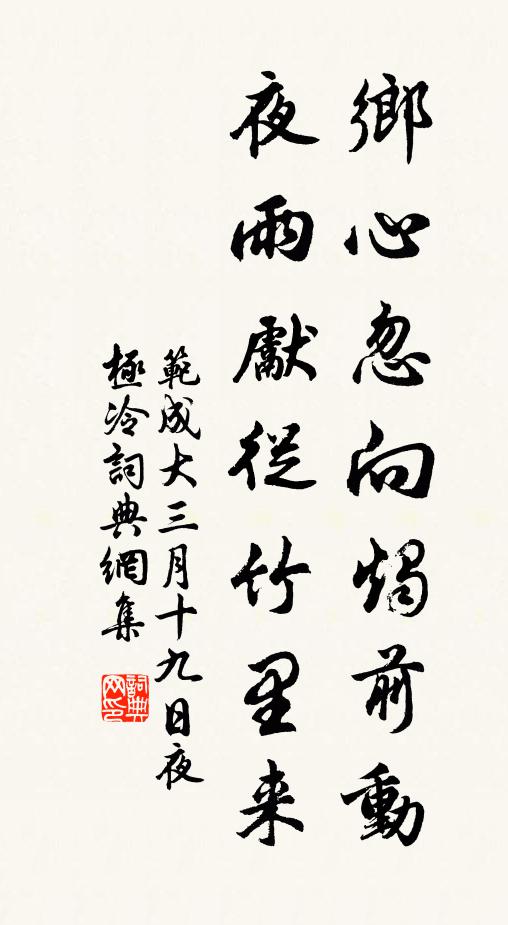 鄉心忽向燭前動
夜雨獻從竹里来
範成大三月十九日夜
極冷詞典網集
詞典网印